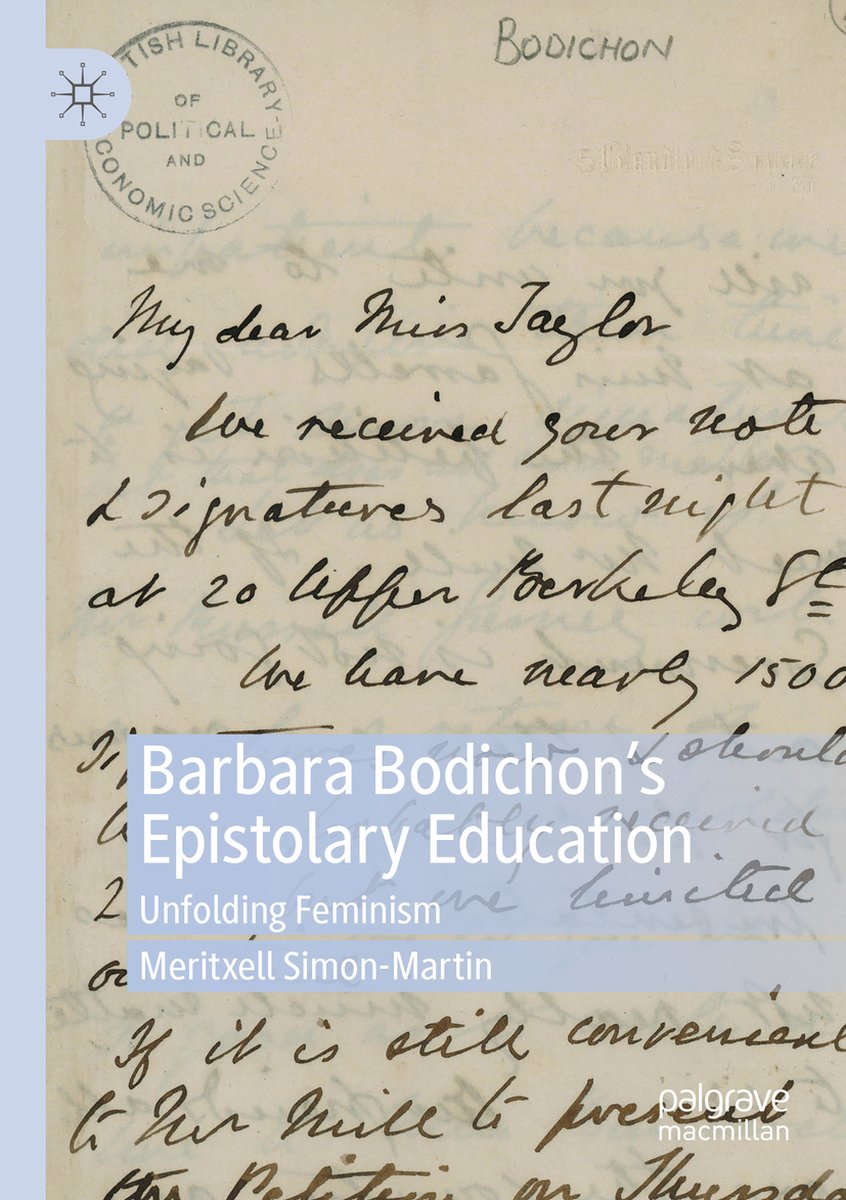 BODICHON
TISH LIBRARY
OF
POLITICAL
AND
CONOMIC SCIENCE
My dear Miss Taylor
We received your note
& signatures last night
at 20 Upper Berkeley St
We have nearly 1500
should
received
2 we limited
Barbara Bodichon's
Epistolary Education
Unfolding Feminism
Meritxell Simon-Martin
If it is still convenient
to Mr Mill to present
the Petition on Thursda
palgrave
macmillan